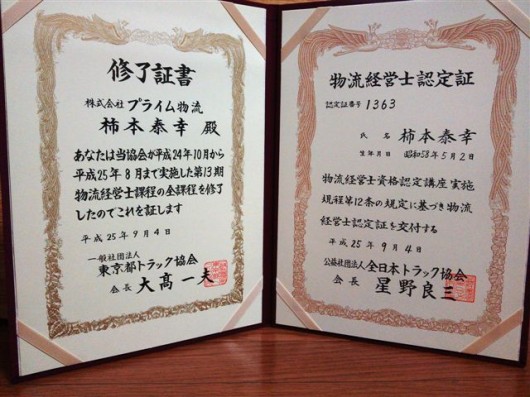 修了証書
株式会社 プライム物流
柿本泰幸 殿
あなたは当協会が平成24年10月から
平成25年8月まで実施した第13期
物流経営士課程の全課程を修了
したのでこれを証します
平成25年9月4日
一般社団法人
東京都トラック協会
会長 大髙一夫
物流経営士認定証
認定証番号 1363
氏名 柿本泰幸
生年月日 昭和58年5月2日
物流経営士資格認定講座実施
規程第12条の規定に基づき物流
経営士認定証を交付する
平成25年9月4日
公益社団法人 全日本トラック協会
会長 星野良三